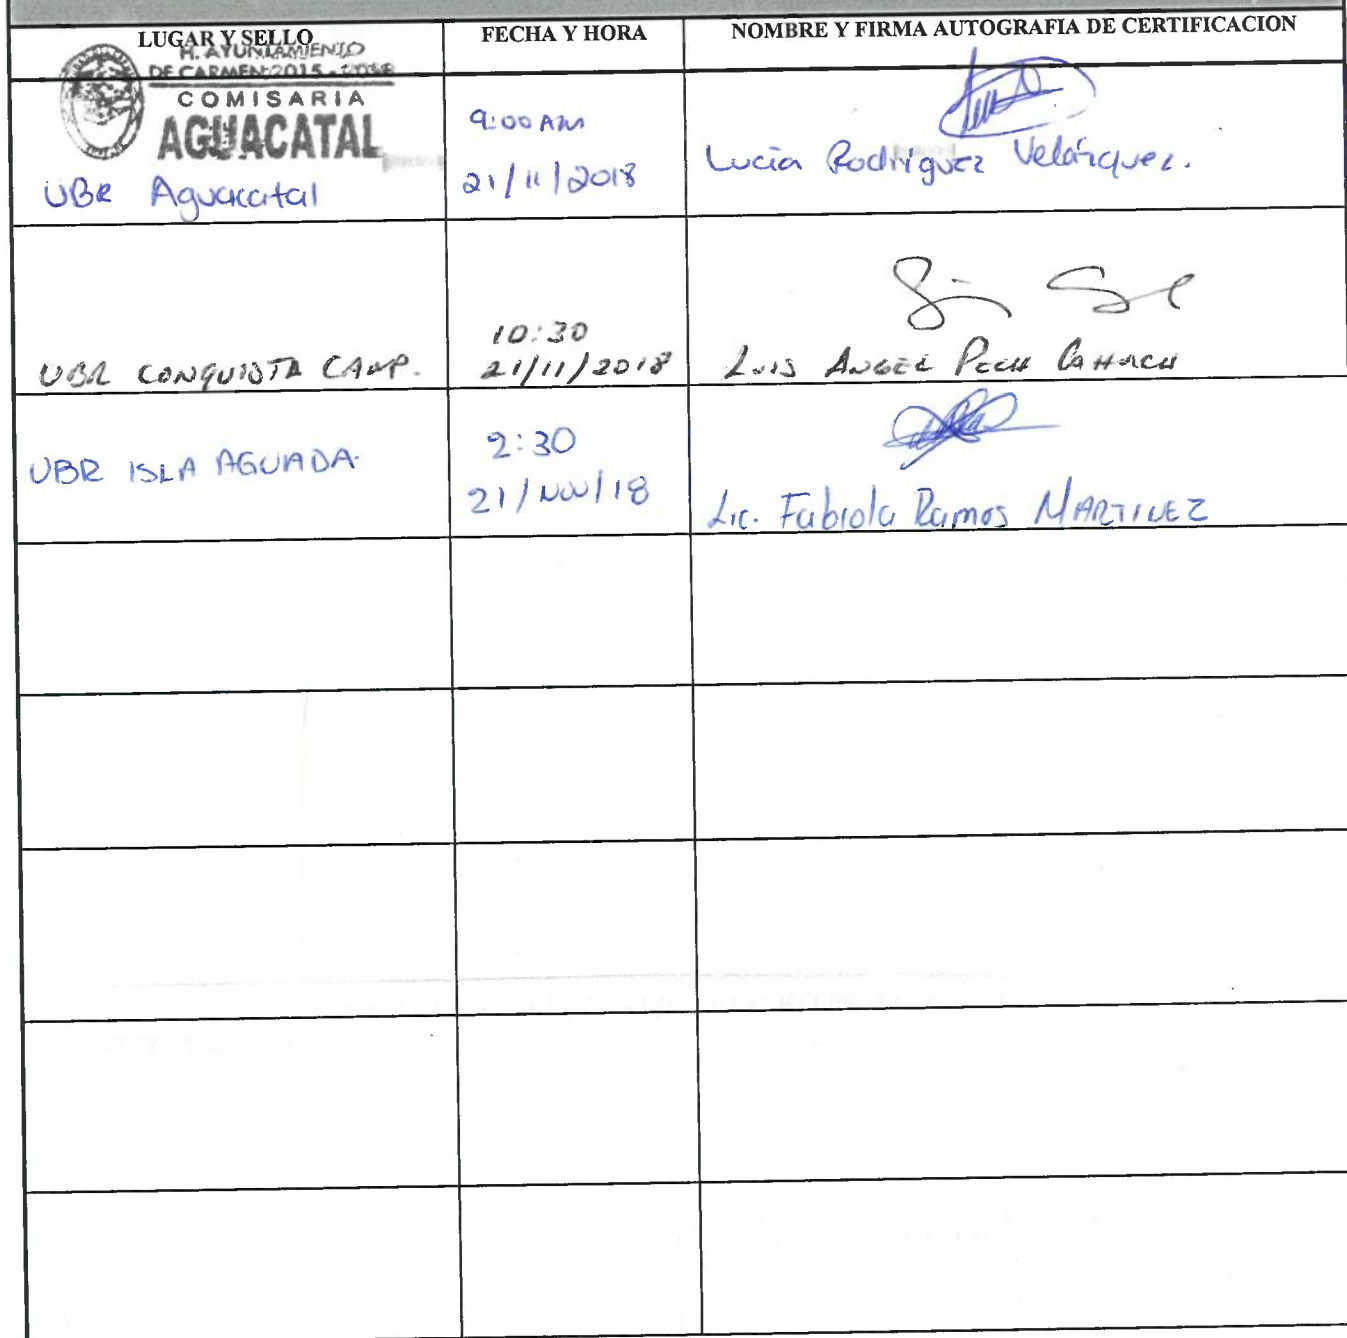 LUGAR Y SELLO
FECHA Y HORA
NOMBRE Y FIRMA AUTOGRAFIA DE CERTIFICACION
H. AYUNTAMIENTO
DE CARMEN 2015 - 2018
COMISARIA
AGUACATAL
UBR Aguacatal
9:00 AM
21/11/2018
Lucia Rodriguez Velázquez.
UBR CONQUISTA CAMP.
10:30
21/11/2018
LUIS ANGEL PECH CAHUICH
UBR ISLA AGUADA.
2:30
21/NOV/18
Lic. Fabiola Ramos MARTINEZ